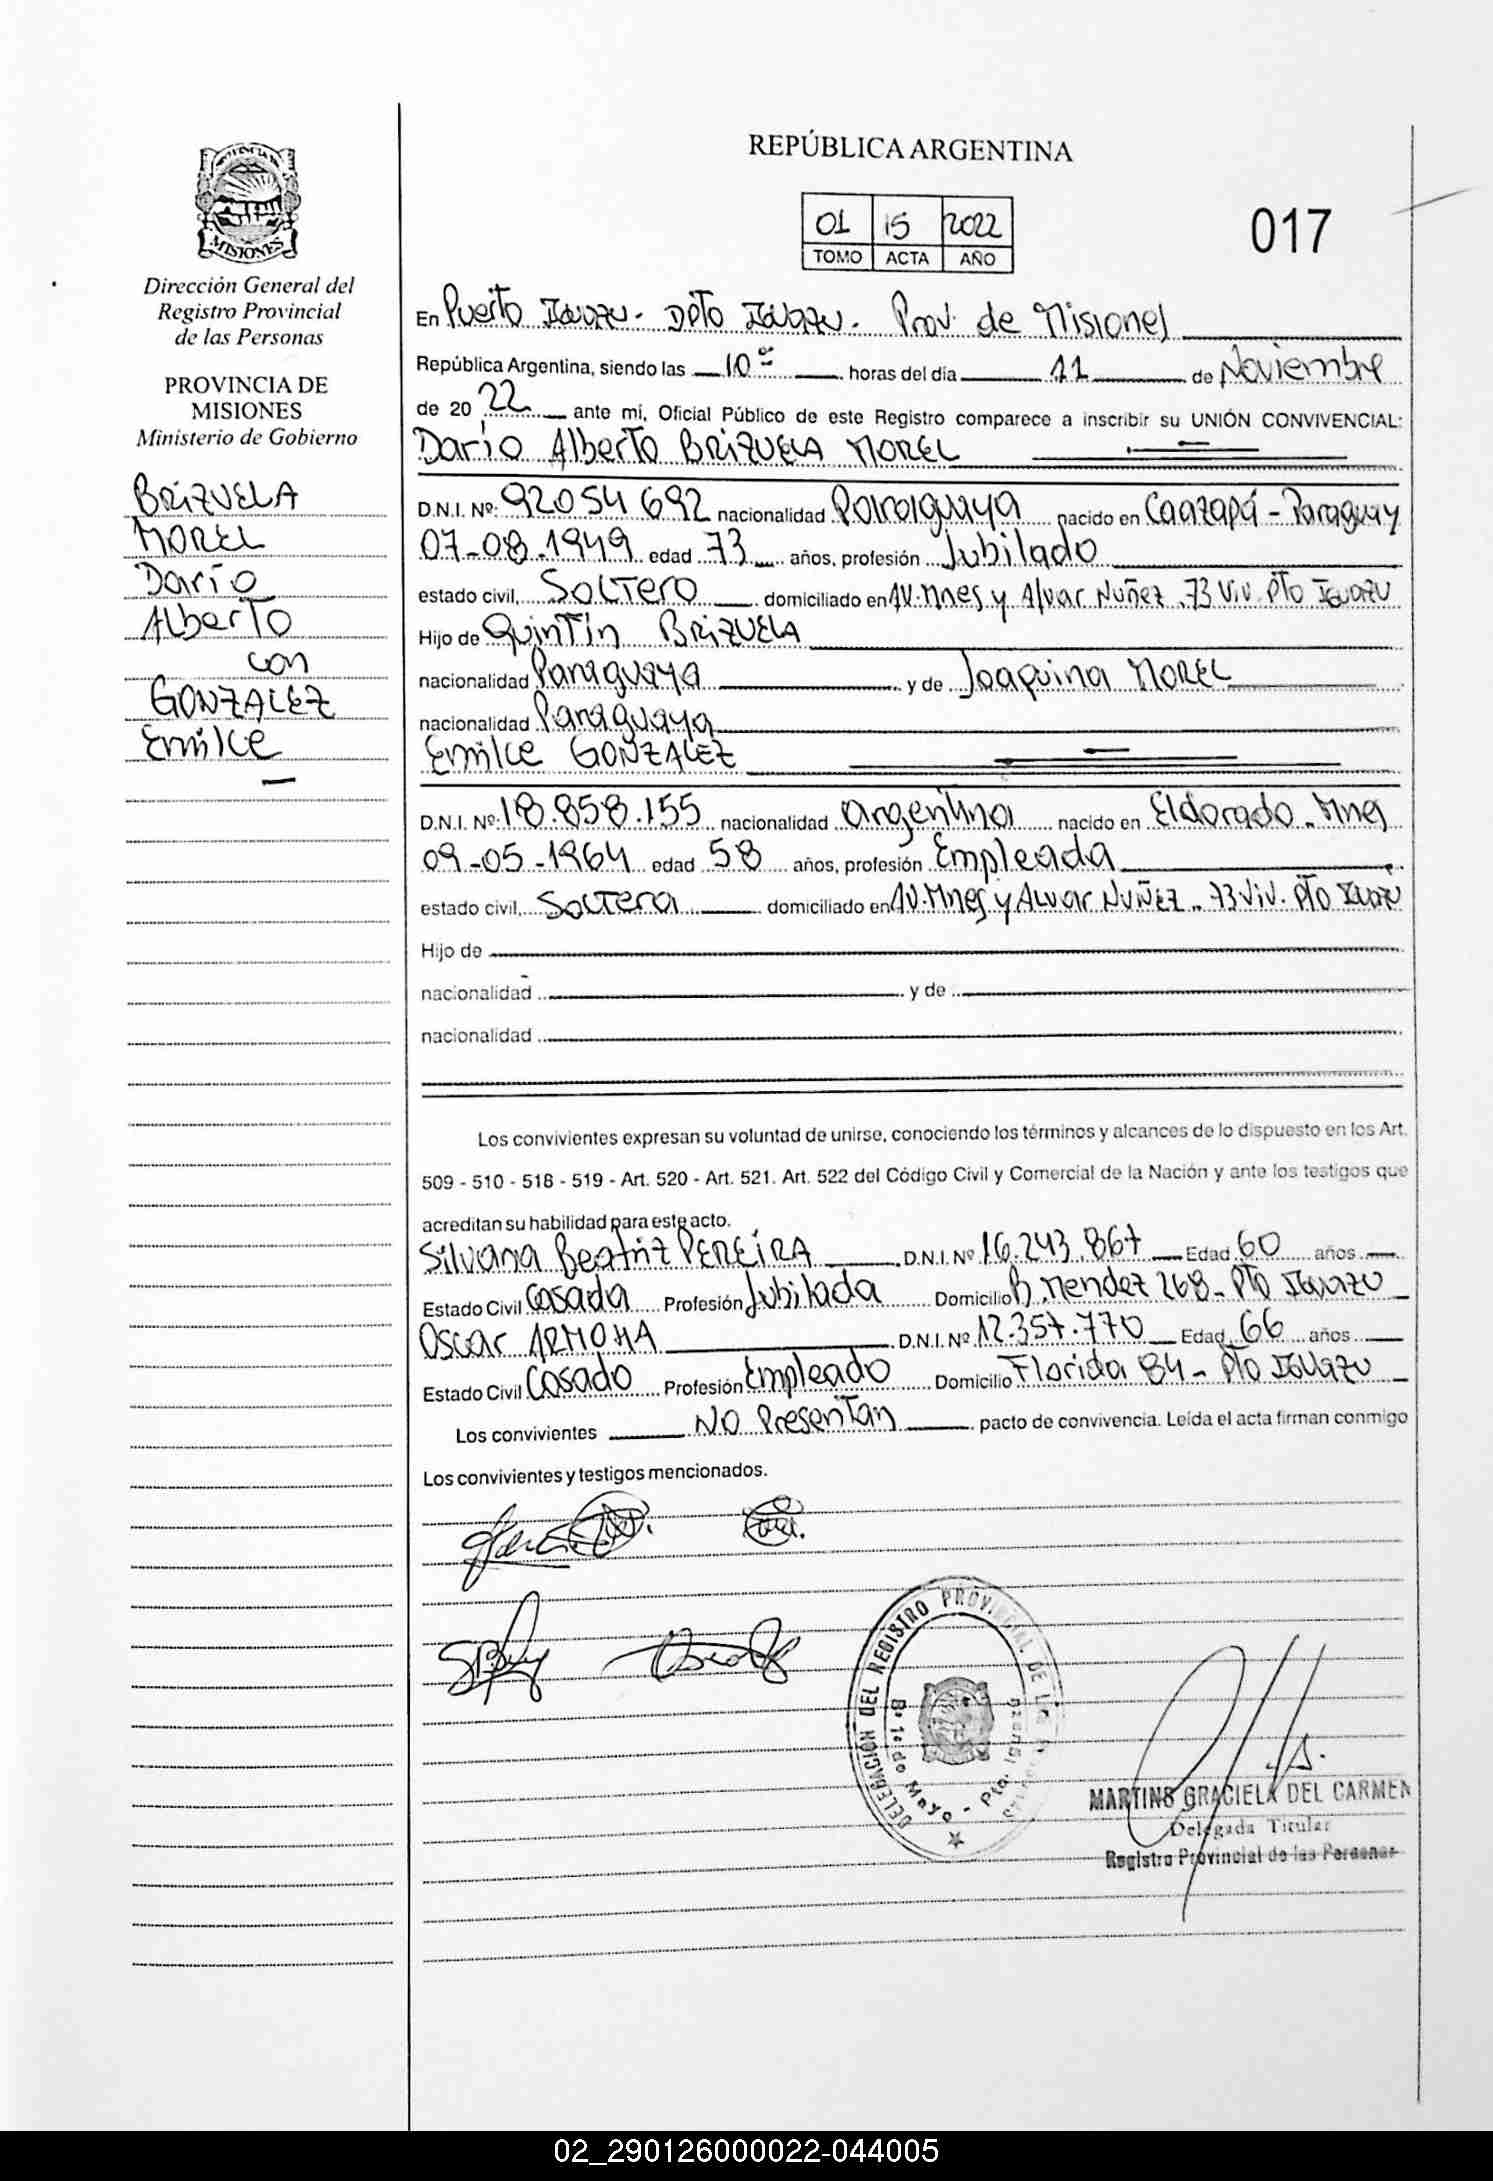 REPÚBLICA ARGENTINA
01 15 2022
TOMO ACTA AÑO
017
PROVINCIA DE
MISIONES
Dirección General del
Registro Provincial
de las Personas
PROVINCIA DE
MISIONES
Ministerio de Gobierno
BRIZUELA
MOREL
Darío
Alberto
con
GONZALEZ
Emilce
En Puerto Iguazu. Dpto Iguazu. Prov. de Misiones
República Argentina, siendo las 10 horas del día 11 de Noviembre
de 20 22 ante mí, Oficial Público de este Registro comparece a inscribir su UNIÓN CONVIVENCIAL:
Darío Alberto BRIZUELA MOREL
D.N.I. Nº: 92054692 nacionalidad Paraguaya nacido en Caazapá - Paraguay
07-08-1949 edad 73 años, profesión Jubilado
estado civil, Soltero domiciliado en AV. Mnes y Alvar Nuñez 73 Viv. Pto Iguazu
Hijo de Quintín BRIZUELA
nacionalidad Paraguaya y de Joaquina MOREL
nacionalidad Paraguaya
Emilce GONZALEZ
D.N.I. Nº: 18.858.155 nacionalidad argentina nacido en Eldorado - Mnes
09-05-1964 edad 58 años, profesión Empleada
estado civil, Soltera domiciliado en AV. Mnes y Alvar Nuñez - 73 Viv. Pto Iguazu
Hijo de
nacionalidad y de
nacionalidad
Los convivientes expresan su voluntad de unirse, conociendo los términos y alcances de lo dispuesto en los Art.
509 - 510 - 518 - 519 - Art. 520 - Art. 521. Art. 522 del Código Civil y Comercial de la Nación y ante los testigos que
acreditan su habilidad para este acto.
Silvana Beatriz PEREIRA D.N.I. Nº 16.243.867 Edad 60 años
Estado Civil Casada Profesión Jubilada Domicilio B. Mendez 268 - Pto Iguazu
Oscar ARMOHA D.N.I. Nº 12.357.770 Edad 66 años
Estado Civil Casado Profesión Empleado Domicilio Florida 84 - Pto Iguazu
Los convivientes NO Presentan pacto de convivencia. Leída el acta firman conmigo
Los convivientes y testigos mencionados.
DELEGACION DEL REGISTRO PROVINCIAL DE LAS
Bº 1º de Mayo - Pto.
MARTINS GRACIELA DEL CARMEN
Delegada Titular
Registro Provincial de las Personas
02_290126000022-044005